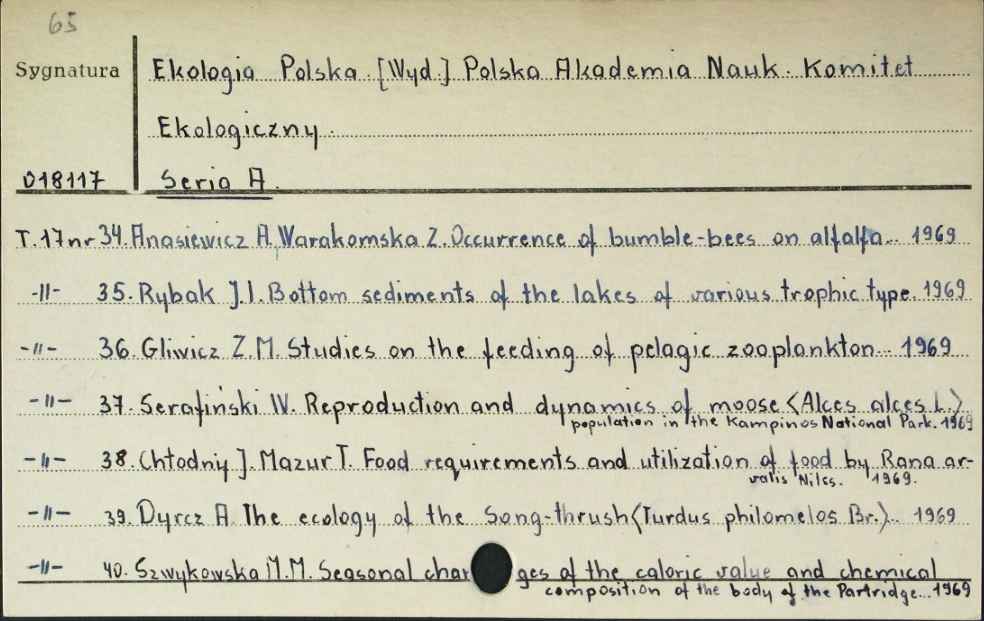 65
Sygnatura Ekologia Polska. [Wyd.] Polska Akademia Nauk. Komitet
Ekologiczny.
018117 Seria A.
T. 17 nr 34. Anasiewicz A, Warakomska Z. Occurrence of bumble-bees on alfalfa... 1969
-II- 35. Rybak J.I. Bottom sediments of the lakes of various trophic type. 1969
-II- 36. Gliwicz Z.M. Studies on the feeding of pelagic zooplankton... 1969
-II- 37. Serafiński W. Reproduction and dynamics of moose <Alces alces L.>
population in the Kampinos National Park. 1969
-II- 38. Chłodny J. Mazur T. Food requirements and utilization of food by Rana ar-
valis Nilss. 1969.
-II- 39. Dyrcz A. The ecology of the Song-thrush <Turdus philomelos Br.>.. 1969
-II- 40. Szwykowska M.M. Seasonal changes of the caloric value and chemical
composition of the body of the Partridge... 1969